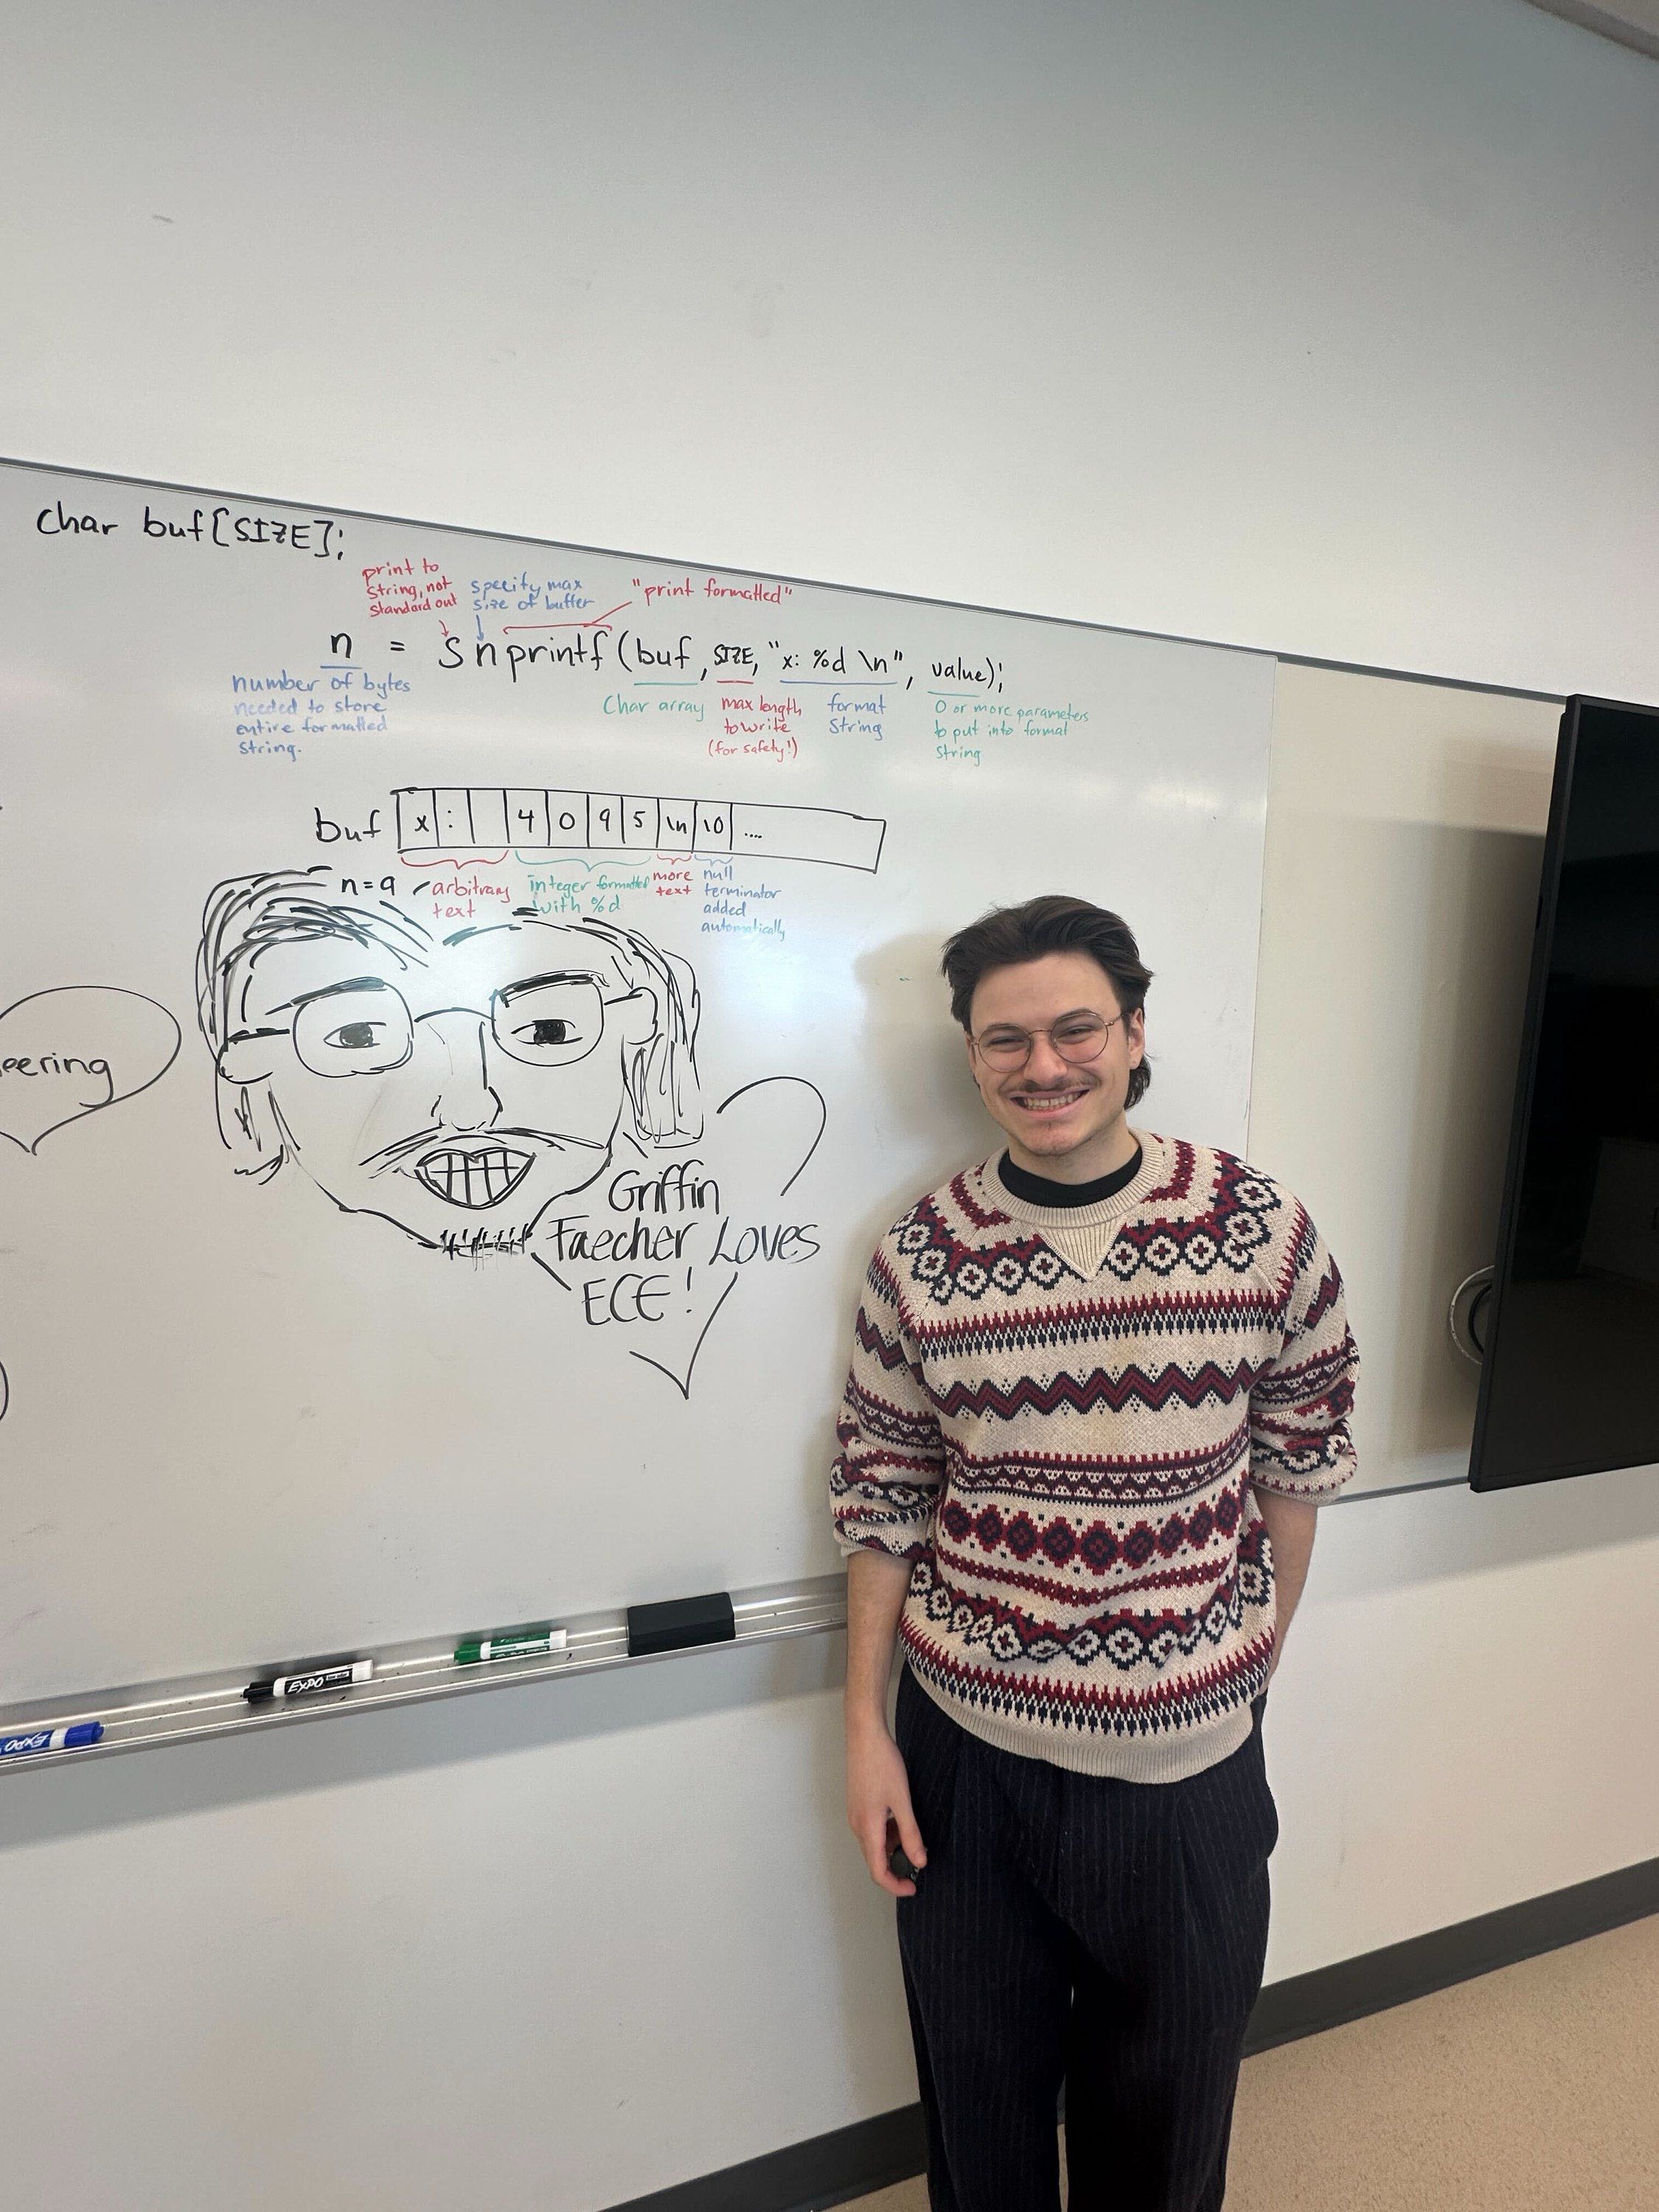 char buf[SIZE];
print to
string, not
standard out
specify max
size of buffer
"print formatted"
n = snprintf(buf, SIZE, "x: %d \n", value);
number of bytes
needed to store
entire formatted
string.
Char array
max length
to write
(for safety!)
format
string
0 or more parameters
to put into format
string
buf x : 4 0 9 5 \n \0 ....
n=9
arbitrary
text
integer formatted
with %d
more
text
null
terminator
added
automatically
eering
Griffin
Faecher Loves
ECE!
EXPO
EXPO